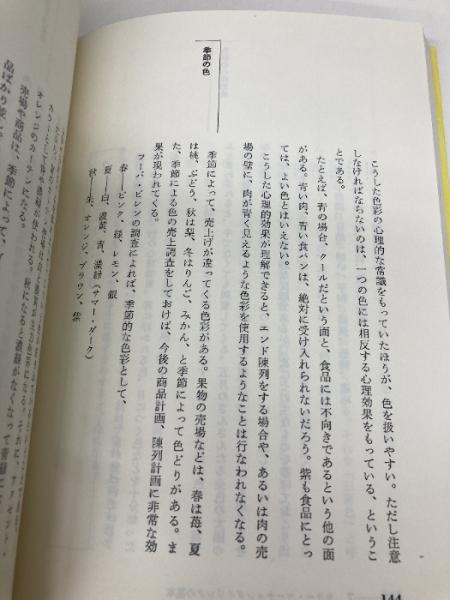 こうした色彩の心理的な常識をもっていたほうが、色を扱いやすい。ただし注意
しなければならないのは、一つの色には相反する心理効果をもっている、というこ
とである。
たとえば、青の場合、クールだという面と、食品には不向きであるという他の面
がある。青い肉、青い食パンは、絶対に受け入れられないだろう。紫も食品にとっ
ては、よい色とはいえない。
こうした心理的効果が理解できると、エンド陳列をする場合や、あるいは肉の売
場の壁に、肉が青く見えるような色彩を使用するようなことは行なわれなくなる。
季節の色
季節によって、売上げが違ってくる色彩がある。果物の売場などは、春は苺、夏
は桃、ぶどう、秋は梨、冬はりんご、みかん、と季節によって色どりがある。ま
た、季節による色の売上調査をしておけば、今後の商品計画、陳列計画に非常な効
果が現われてくる。
フーバ・ビレンの調査によれば、季節的な色彩として、
春——ピンク、緑、レモン、銀
夏——白、濃黄、青、濃緑（サマー・ダーク）
秋——朱、オレンジ、ブラウン、紫
オレンジのカーテンになる。
売場や商品は、季節によって、
品ばかり並
144